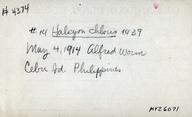 # 4374
# 14 Halcyon chloris ♂ 939
May 4, 1914 Alfred Worm
Cebu Id. Philippines
MVZ 6071